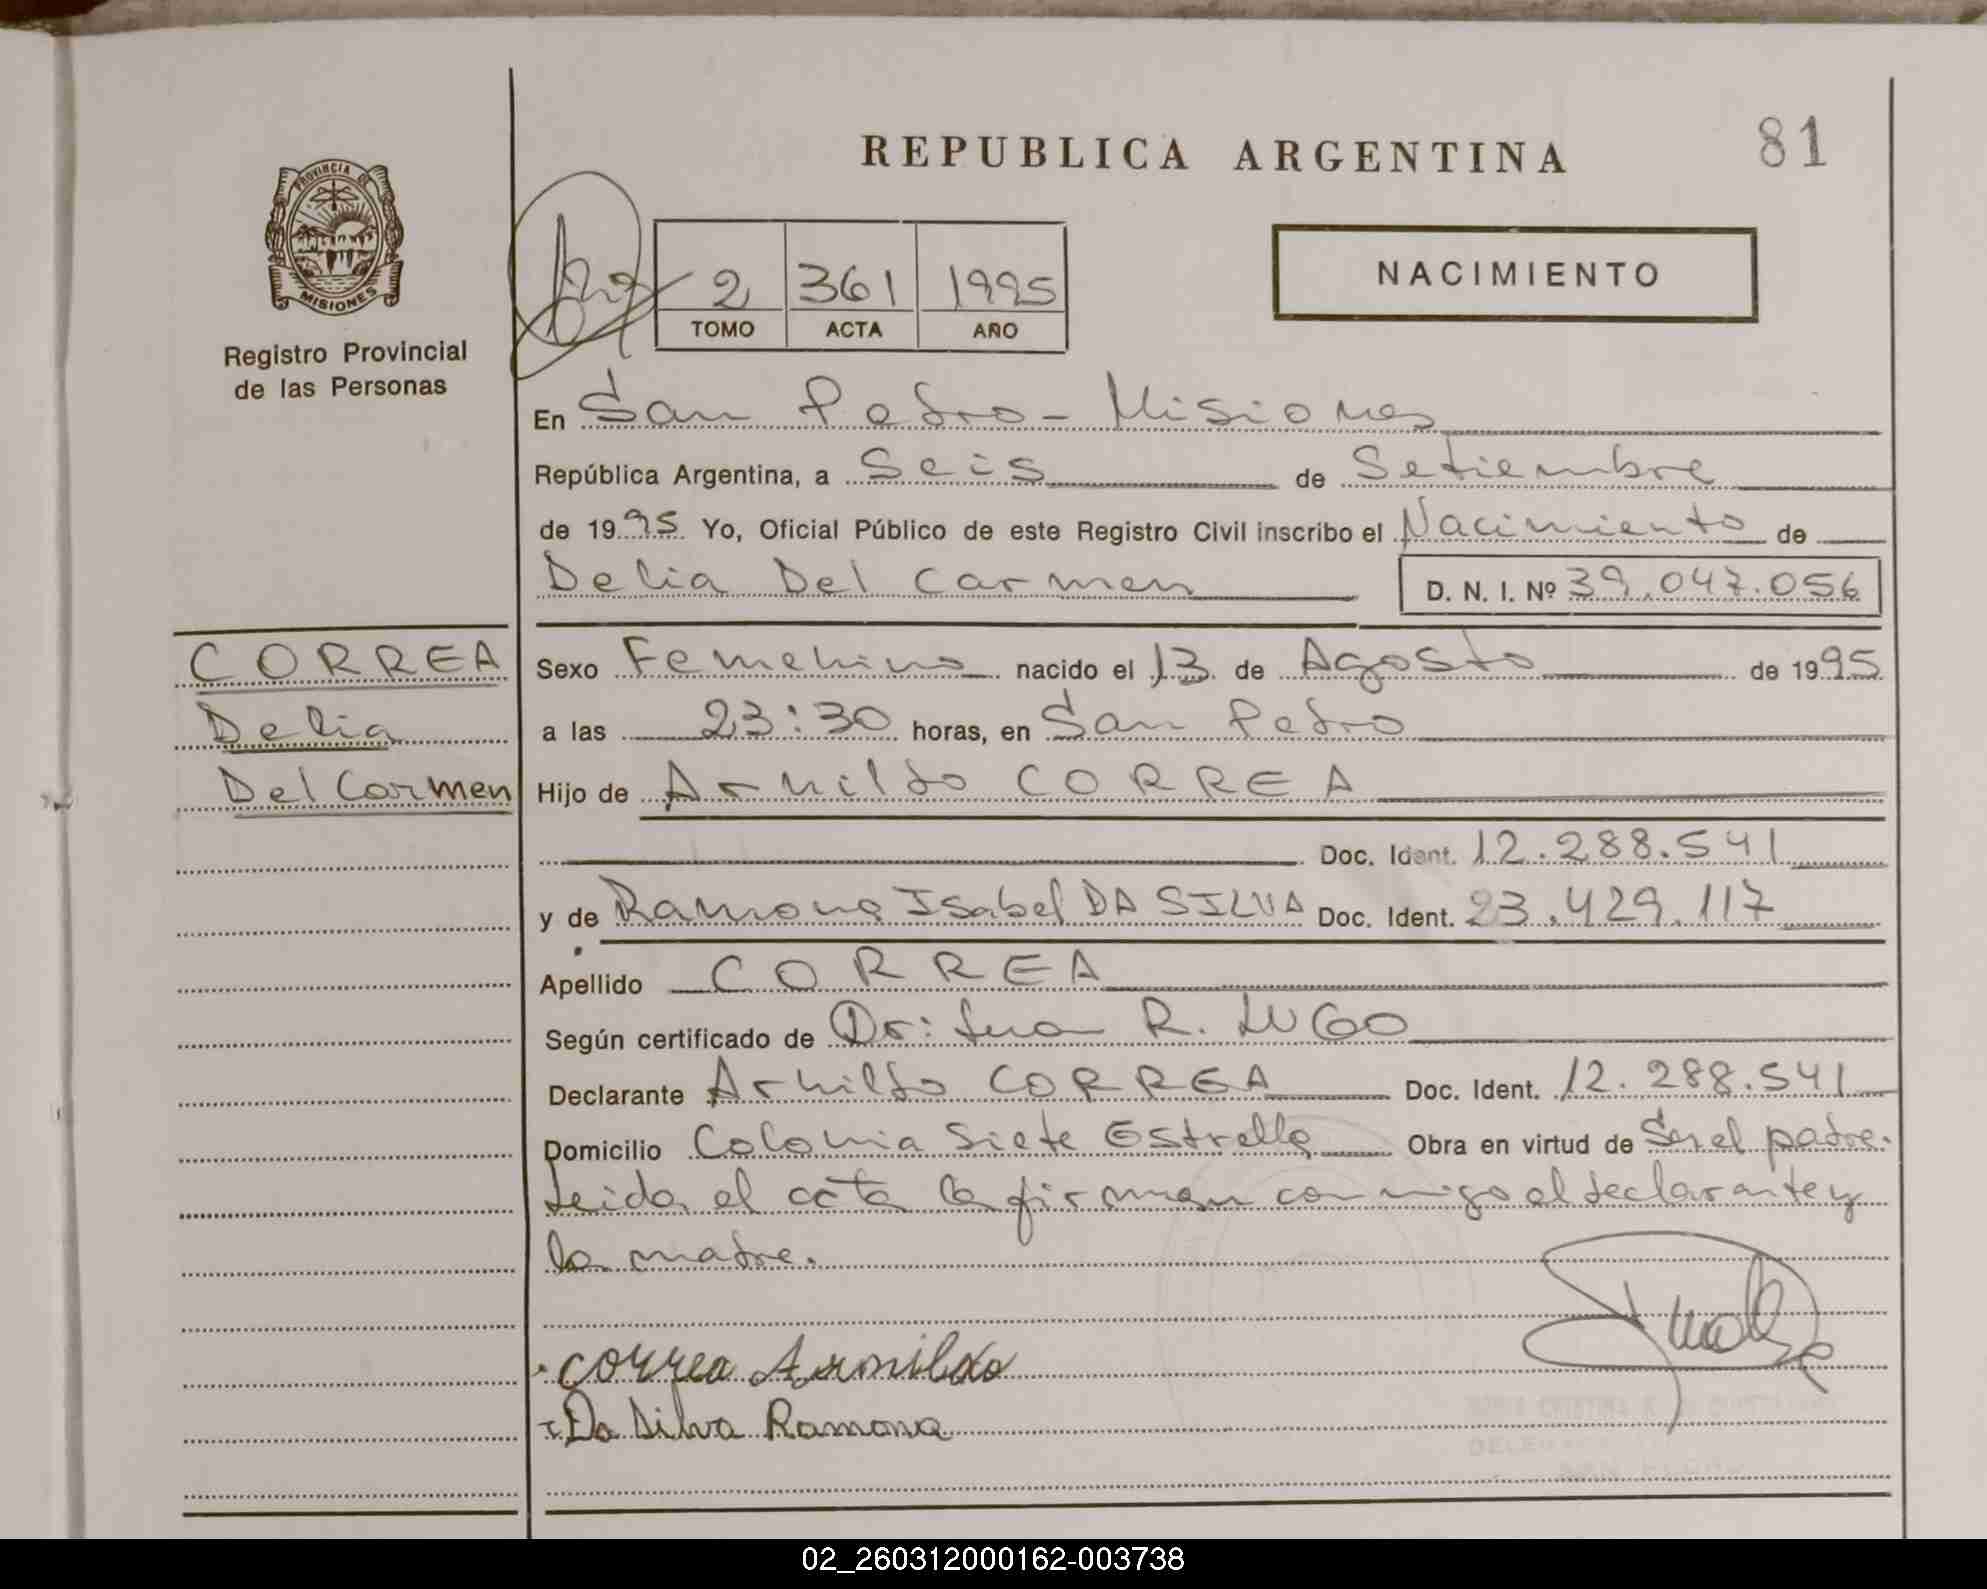 REPUBLICA ARGENTINA
81
PROVINCIA DE
MISIONES
Registro Provincial
de las Personas
2 361 1995
TOMO ACTA AÑO
NACIMIENTO
En San Pedro - Misiones
República Argentina, a Seis de Setiembre
de 1995 Yo, Oficial Público de este Registro Civil inscribo el Nacimiento de
Delia Del Carmen D. N. I. Nº 39.047.056
CORREA
Delia
Del Carmen
Sexo Femenino nacido el 13 de Agosto de 1995
a las 23:30 horas, en San Pedro
Hijo de Arnildo CORREA
Doc. Ident. 12.288.541
y de Ramona Isabel DA SILVA Doc. Ident. 23.429.117
Apellido CORREA
Según certificado de Dr: Juan R. LUGO
Declarante Arnildo CORREA Doc. Ident. 12.288.541
Domicilio Colonia Siete Estrella Obra en virtud de Ser el padre.
Leida el acta la firman conmigo el declarante y
la madre.
Correa Arnildo
Da Silva Ramona
02_260312000162-003738